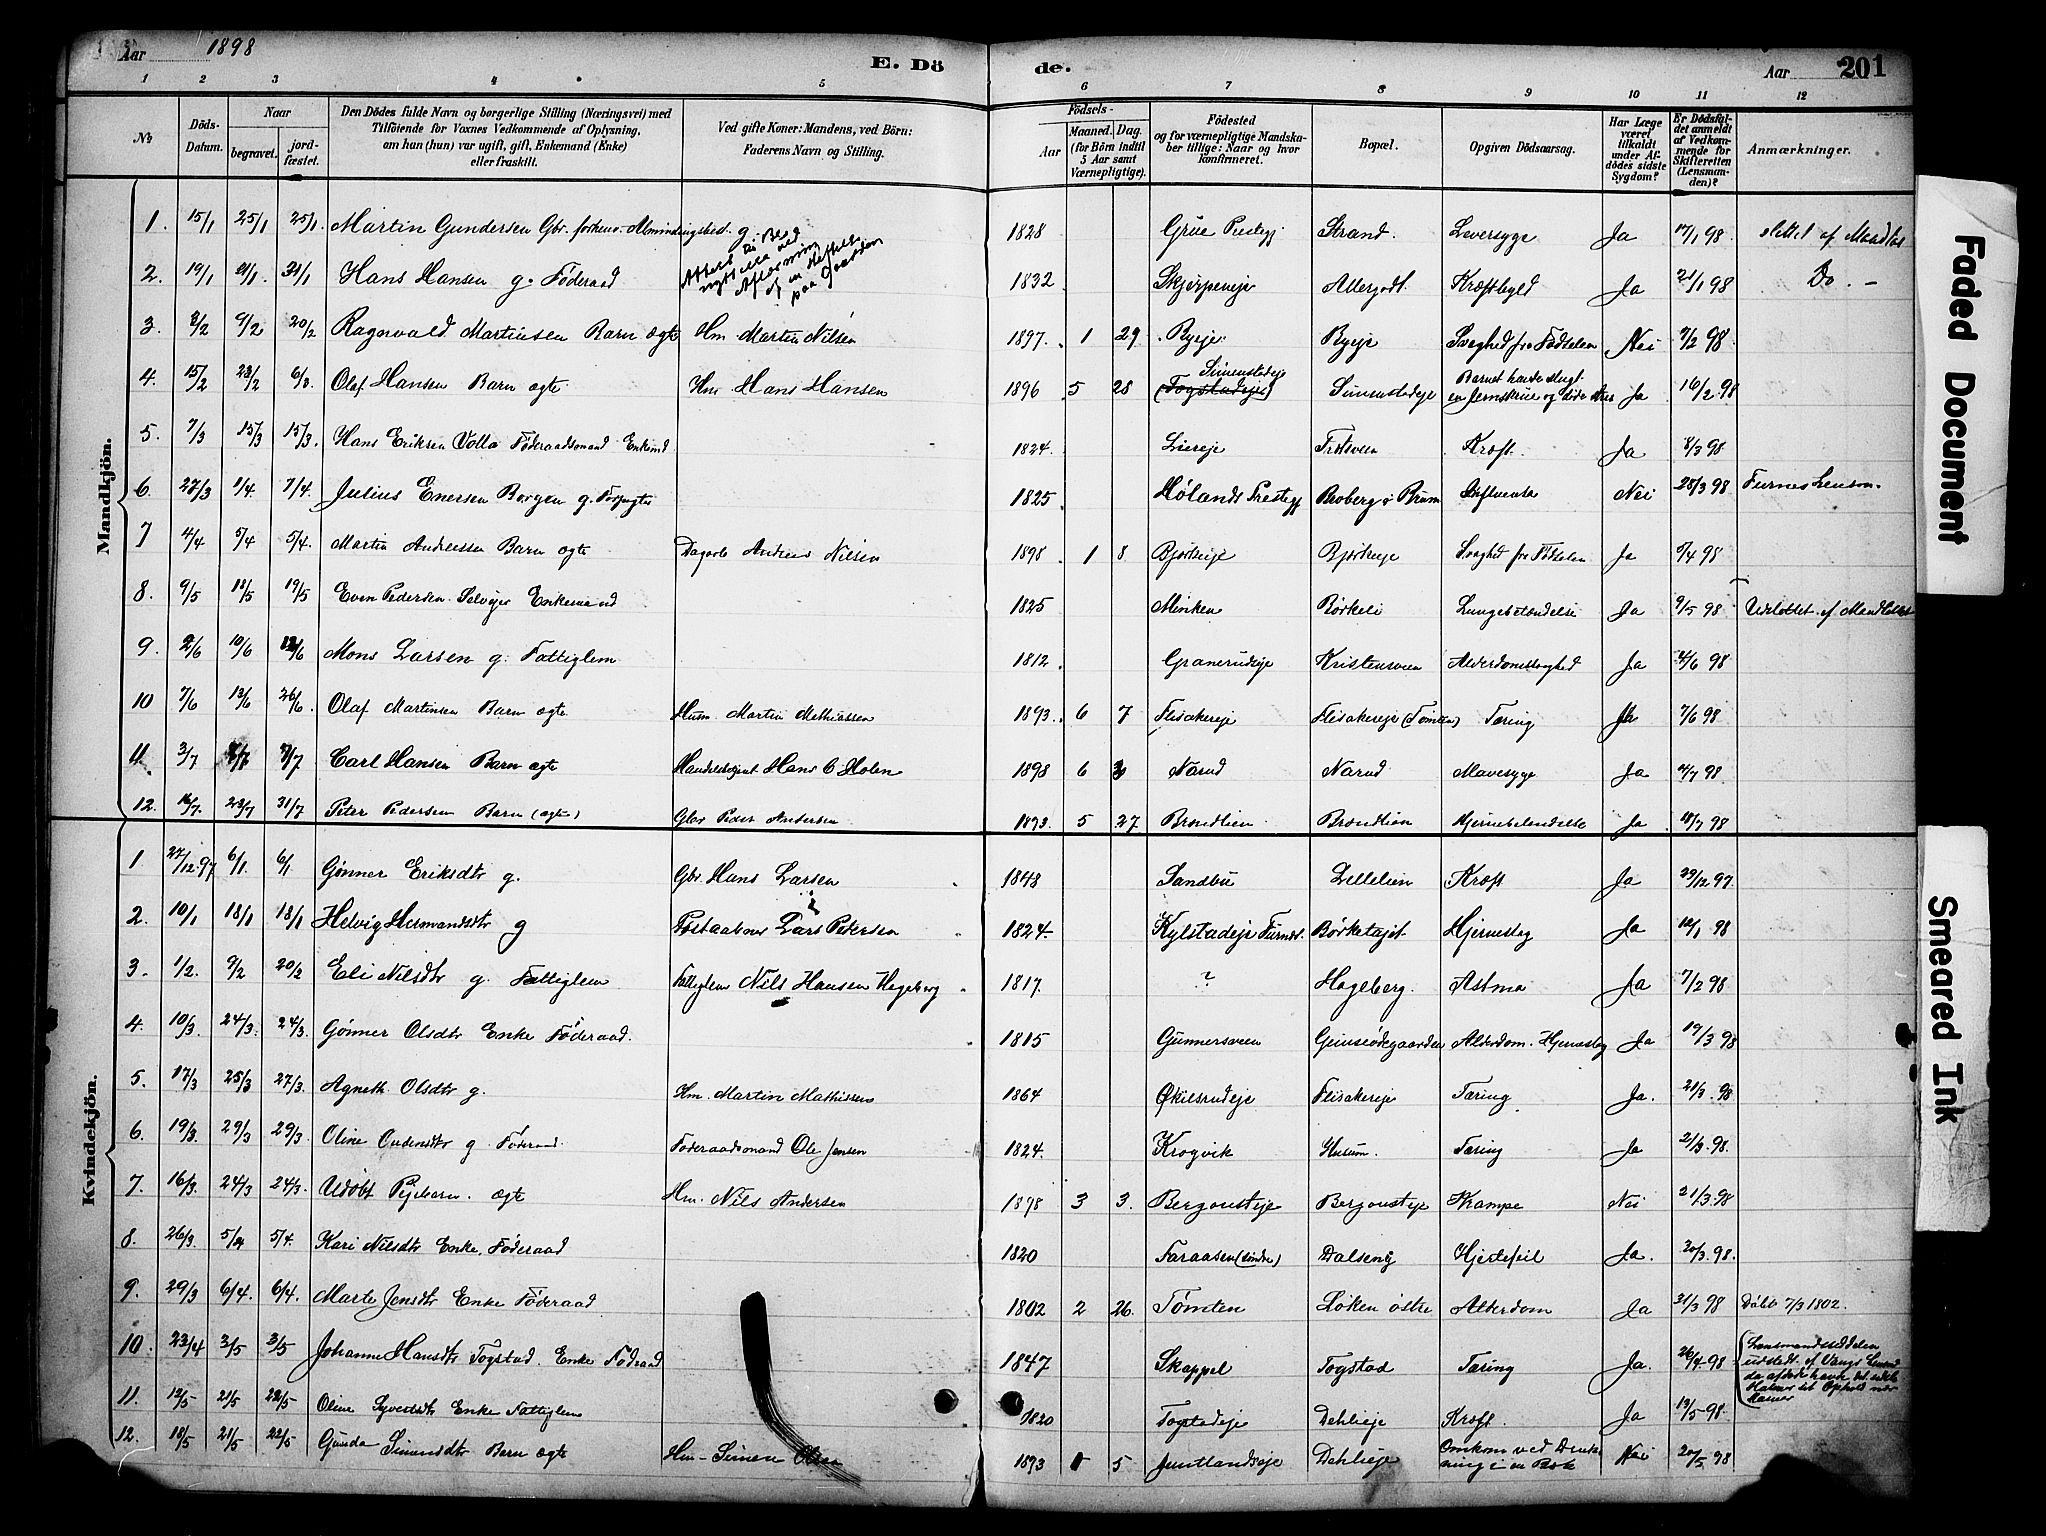 Aar 1898
E. Dö de.
Aar 201
1 2 3 4 5 6 7 8 9 10 11 12
№
Döds-Datum.
Naar
begravet.
jord-fæstet.
Den Dödes fulde Navn og borgerlige Stilling (Næringsvei) med
Tilföiende for Voxnes Vedkommende af Oplysning,
om han (hun) var ugift, gift, Enkemand (Enke)
eller fraskilt.
Ved gifte Koner: Mandens, ved Börn:
Faderens Navn og Stilling.
Födsels-
Aar
Maaned. Dag.
(for Börn indtil
5 Aar samt
Værnepligtige).
Födested
og for værnepligtige Mandska-
ber tillige: Naar og hvor
konfirmeret.
Bopæl.
Opgiven Dödsaarsag.
Har Læge
været
tilkaldt
under Af-
dödes sidste
Sygdom?
Er Dödsfal-
det anmeldt
af Vedkom-
mende for
Skifteretten
(Lensman-
den)?
Anmærkninger.
Mandkjön.
1. 15/1 25/1 25/1 Martin Gundersen Gbr. g. 1828 Grue Strand. Leversyge Ja 17/1 98
2. 19/1 31/1 Hans Hansen g. Föderaad 1832 Kræftbyld Ja 21/1 98 Do. -
3. 9/2 20/2 Ragnvald Martinsen Barn ægte Hm Martin Nilsen 1897. 1 29 Byeje Byeje Svaghed fra Fødselen Nei 7/2 98
4. 15/2 23/2 6/3 Olaf Hansen Barn ægte Hm Hans Hansen 1896 5 28 Simenstadeje (Togstadeje) Simenstadeje Barnet havde slugt en Jernskrue og döde Ja 16/2 98
5. 7/3 15/3 15/3. Hans Eriksen Volla Föderaadsmand Enkemd 1824. Liereje Kræft. Ja 8/3 98
6. 27/3 1/4. 7/4. Julius Enersen Borgen g. 1825. Hölands Prestegj Broberg Nei 28/3 98 Furnes
7 4/4 5/4 5/4. Martin Andreassen Barn ægte Dagarb Andreas Nilsen 1898. 1 8 Bjørkeje Bjørkeje Svaghed fra Fødselen Ja 5/4 98
8. 9/5 18/5 19/5 Even Pedersen Selveier Enkemand 1825 Minken Børkeli Lungebetændelse Ja 9/5 98
9. 2/6 10/6 Mons Larsen g. Fattiglem 1812. Granerudeje Kristensveen Alderdomssvaghed Ja 4/6 98
10 7/6 13/6 26/6. Olaf Martinsen Barn ægte Husm. Martin Mathiassen 1893. 6 7 Flisakereje Flisakereje (Tomten) Tæring Ja 7/6 98
11. 3/7 7/7 Carl Hansen Barn ægte Handelsagent Hans C Holen 1898 6 Narud Narud Mavesyge Ja 4/7 98
12. 16/7. 23/7 31/7 Peter Pedersen Barn (ægte) Gbr Peder Andersen 1893. 5 27 Brændlien Brændlien Hjernebetændelse Ja 18/7 98
Kvindekjön.
1. 27/12 97 6/1. 6/1 Gønner Eriksdtr g. Gbr. Hans Larsen 1848 Sandbu Lillelien Kræft Ja 29/12 97.
2. 10/1 18/1 18/1 Helvig Hermandsdtr g Lars Petersen 1824. Kylstadeje Furnes. Hjerneslag Ja 12/1 98
3. 1/2. 9/2 20/2 Eli Nilsdtr g. Fattiglem Fattiglem Nils Hansen Hageberg 1817. ? Hageberg. Astma Ja 7/2 98
4. 10/3. 24/3. 24/3. Gønner Olsdtr Enke Föderaad. 1815 Gunnersveen Alderdom. Hjerneslag Ja 19/3 98
5. 17/3 25/3 27/3. Agneth. Olsdtr g. Hm. Martin Mathissen 1864 Økilsrudeje Flisakereje Tæring Ja. 21/3 98
6. 19/3. 29/3 29/3. Oline g Föderaad. Föderaadsmand Ole Jensen 1824. Krogvik Husum. Tæring Ja 21/3 98.
7. 16/3. 24/3 24/3. Udöbt Pigebarn. ægte Hm. Nils Andersen 1898 3 3. Bergousteje Bergousteje Krampe Nei 21/3 98
8. 26/3. 5/4 5/4. Kari Nilsdtr Enke. Föderaad 1820 Faraasen (söndre) Dalseng Hjertefeil Ja. 30/3 98.
9. 29/3 6/4. 6/4. Marte Jensdtr Enke Föderaad 1802 2 26. Tömten Löken östre Alderdom Ja 31/3 98 Döbt 7/3 1802.
10. 23/4 3/5 3/5 Johanne Hansdtr Togstad. Enke Föderaad 1847 Skappel Togstad Tæring Ja. 26/4 98 Lensmandsseddelen udstedt af Vangs
11. 12/5 21/5 22/5 Oline Syversdtr Enke Fattiglem 1820 Togstadeje Dehlieje Kræft. Ja 13/5 98.
12. 18/5 21/5 22/5 Gunda Simensdtr Barn ægte Hm- Simen Olsen 1893 5 Dehlieje Omkom ved Nei 20/5 98
Faded Document
Smeared Ink